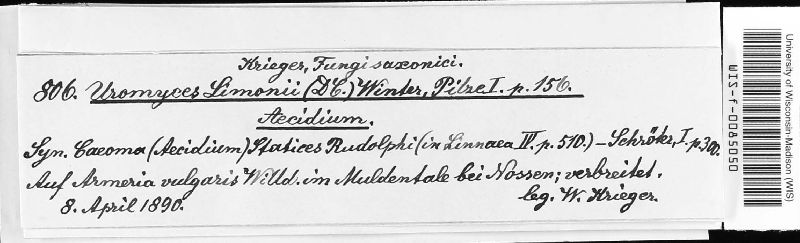 Krieger, Fungi saxonici.
806. Uromyces Limonii (D'C.) Winter, Pilze I. p. 156.
Aecidium.
Syn. Caeoma (Aecidium) Statices Rudolphi (in Linnaea IV. p. 510.) – Schröter, I. p. 300.
Auf Armeria vulgaris Willd. im Muldentale bei Nossen; verbreitet.
8. April 1890. leg. W. Krieger.
WIS-f-0085050
University of Wisconsin-Madison (WIS)